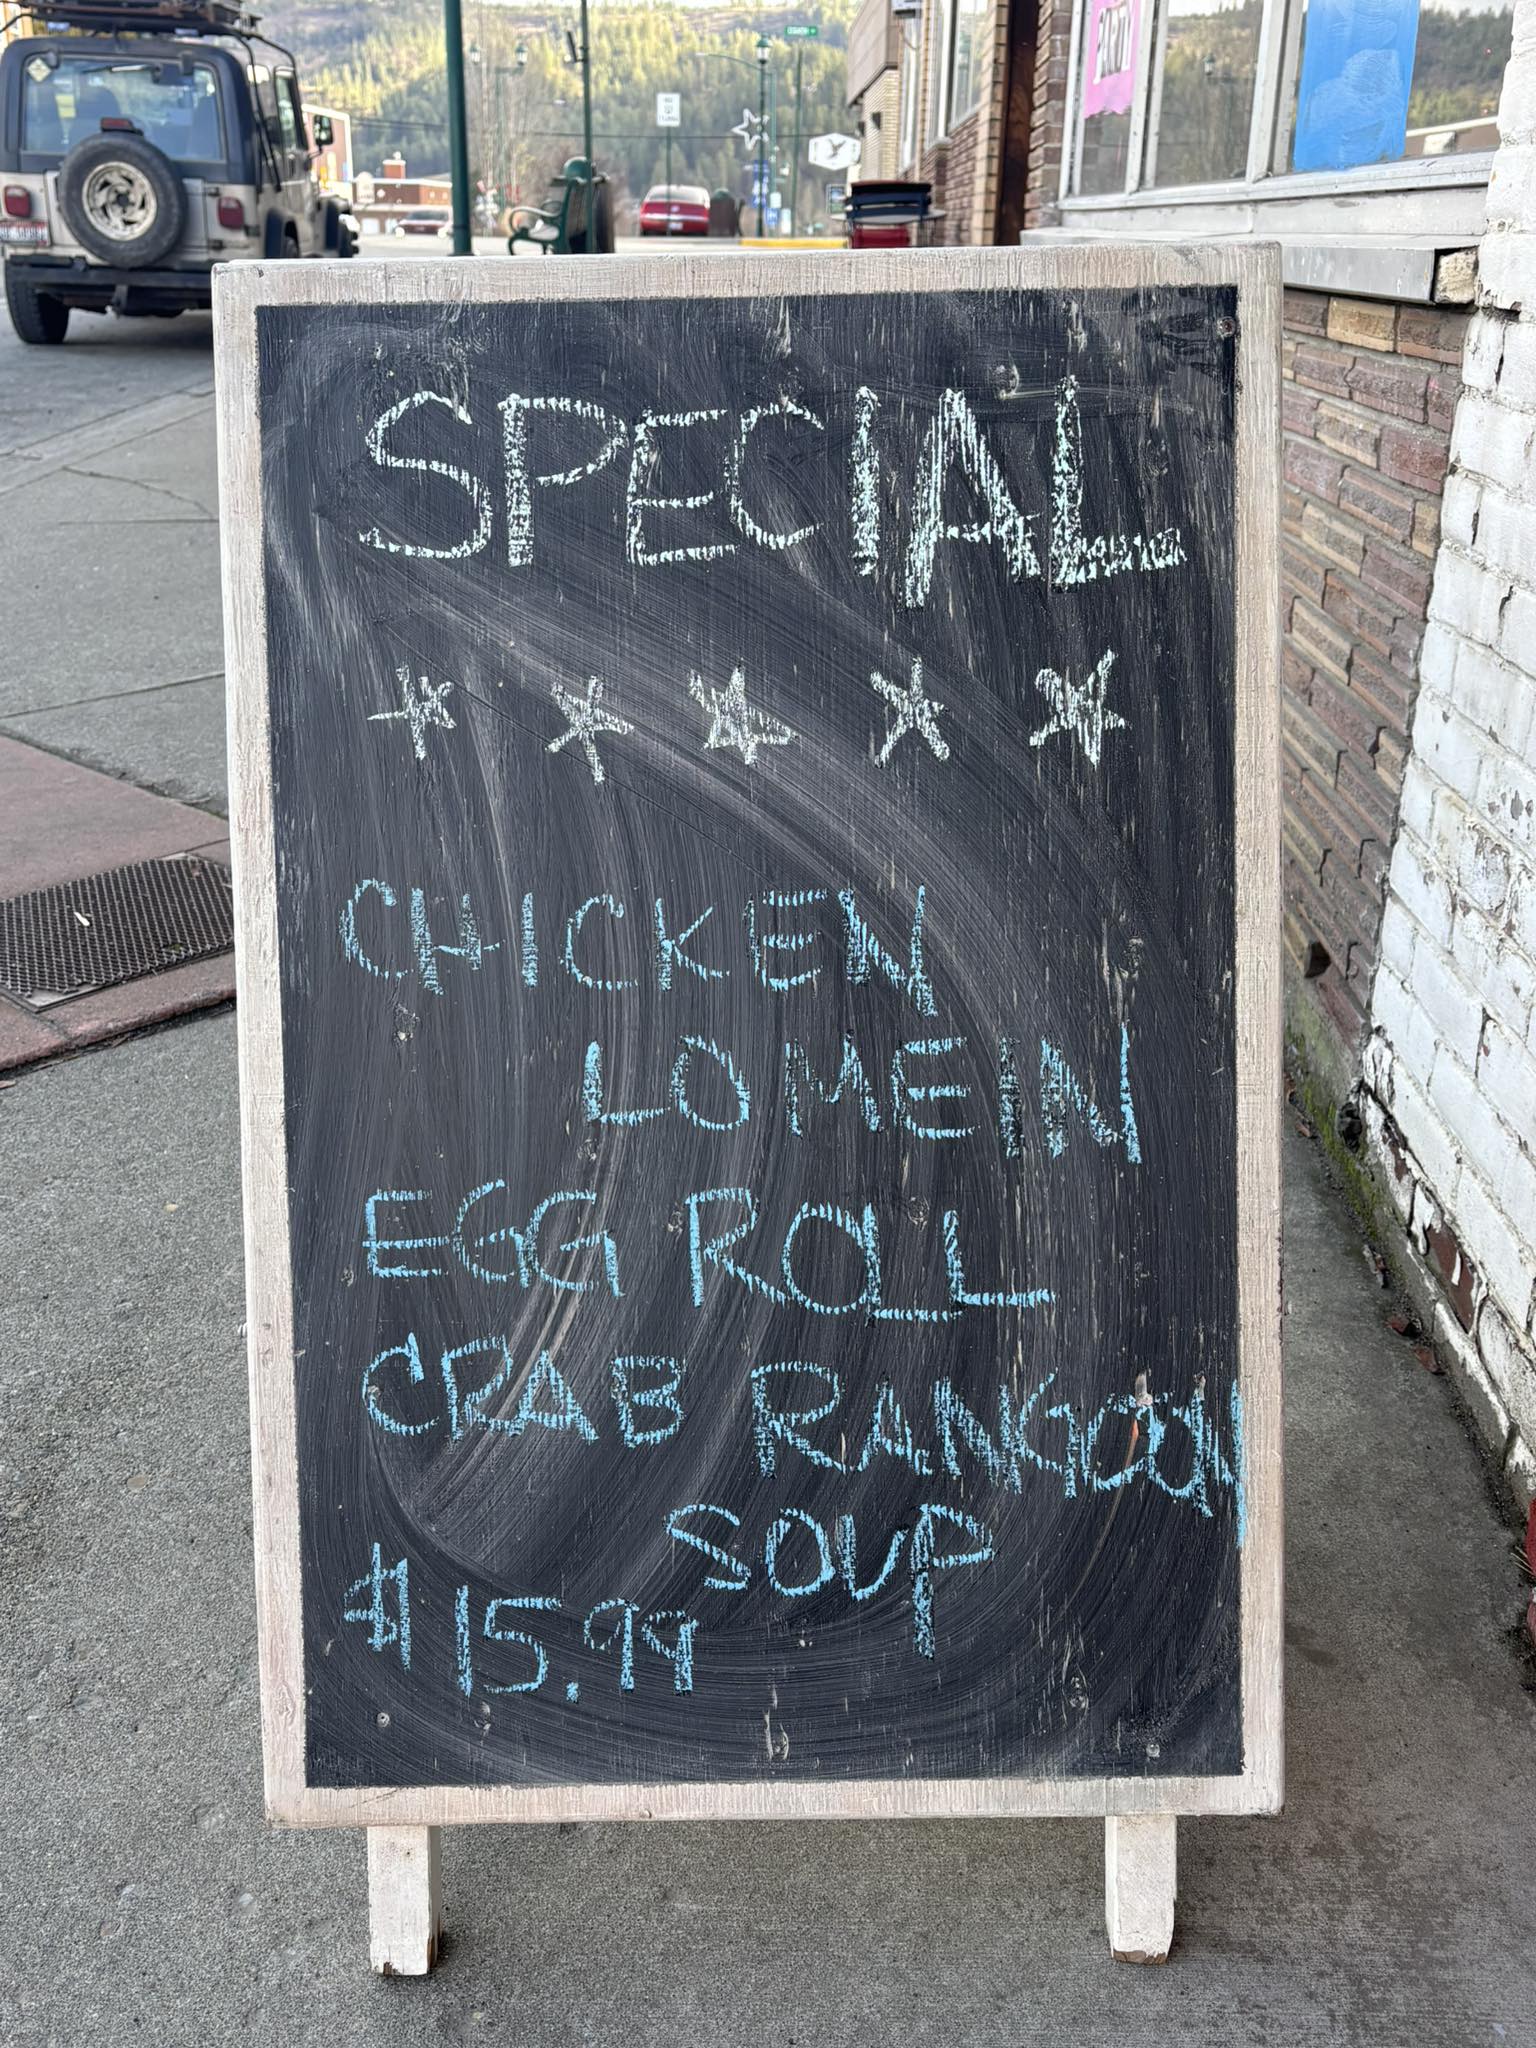 SPECIAL
CHICKEN
LOMEIN
EGG ROLL
CRAB RANGOON
SOUP
$15.99